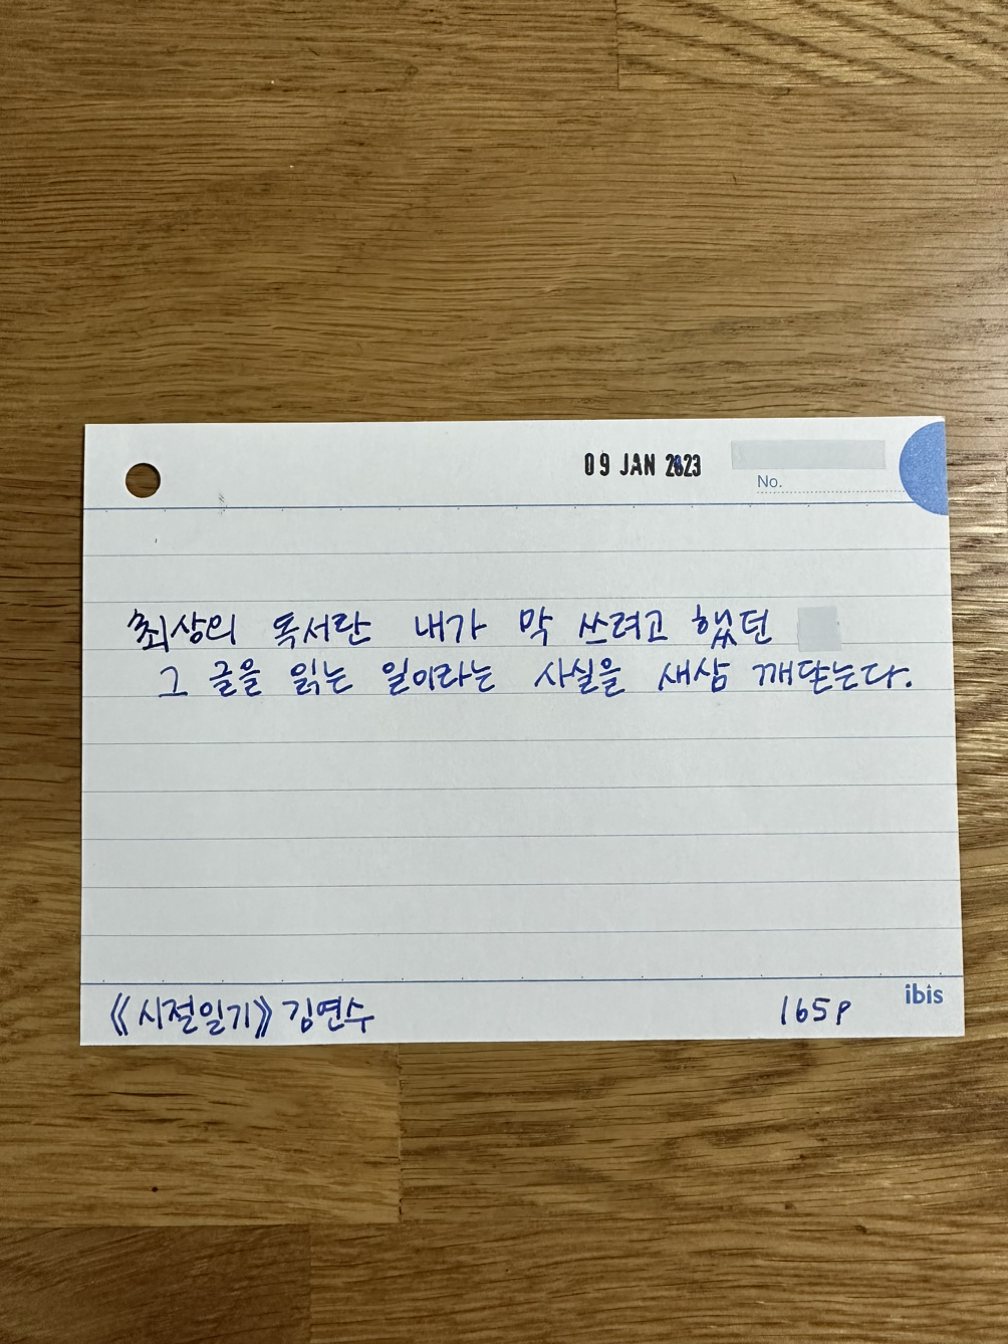 09 JAN 2023
No.
최상의 독서란 내가 막 쓰려고 했던
그 글을 읽는 일이라는 사실을 새삼 깨닫는다.
《시절일기》 김연수 165p
ibis